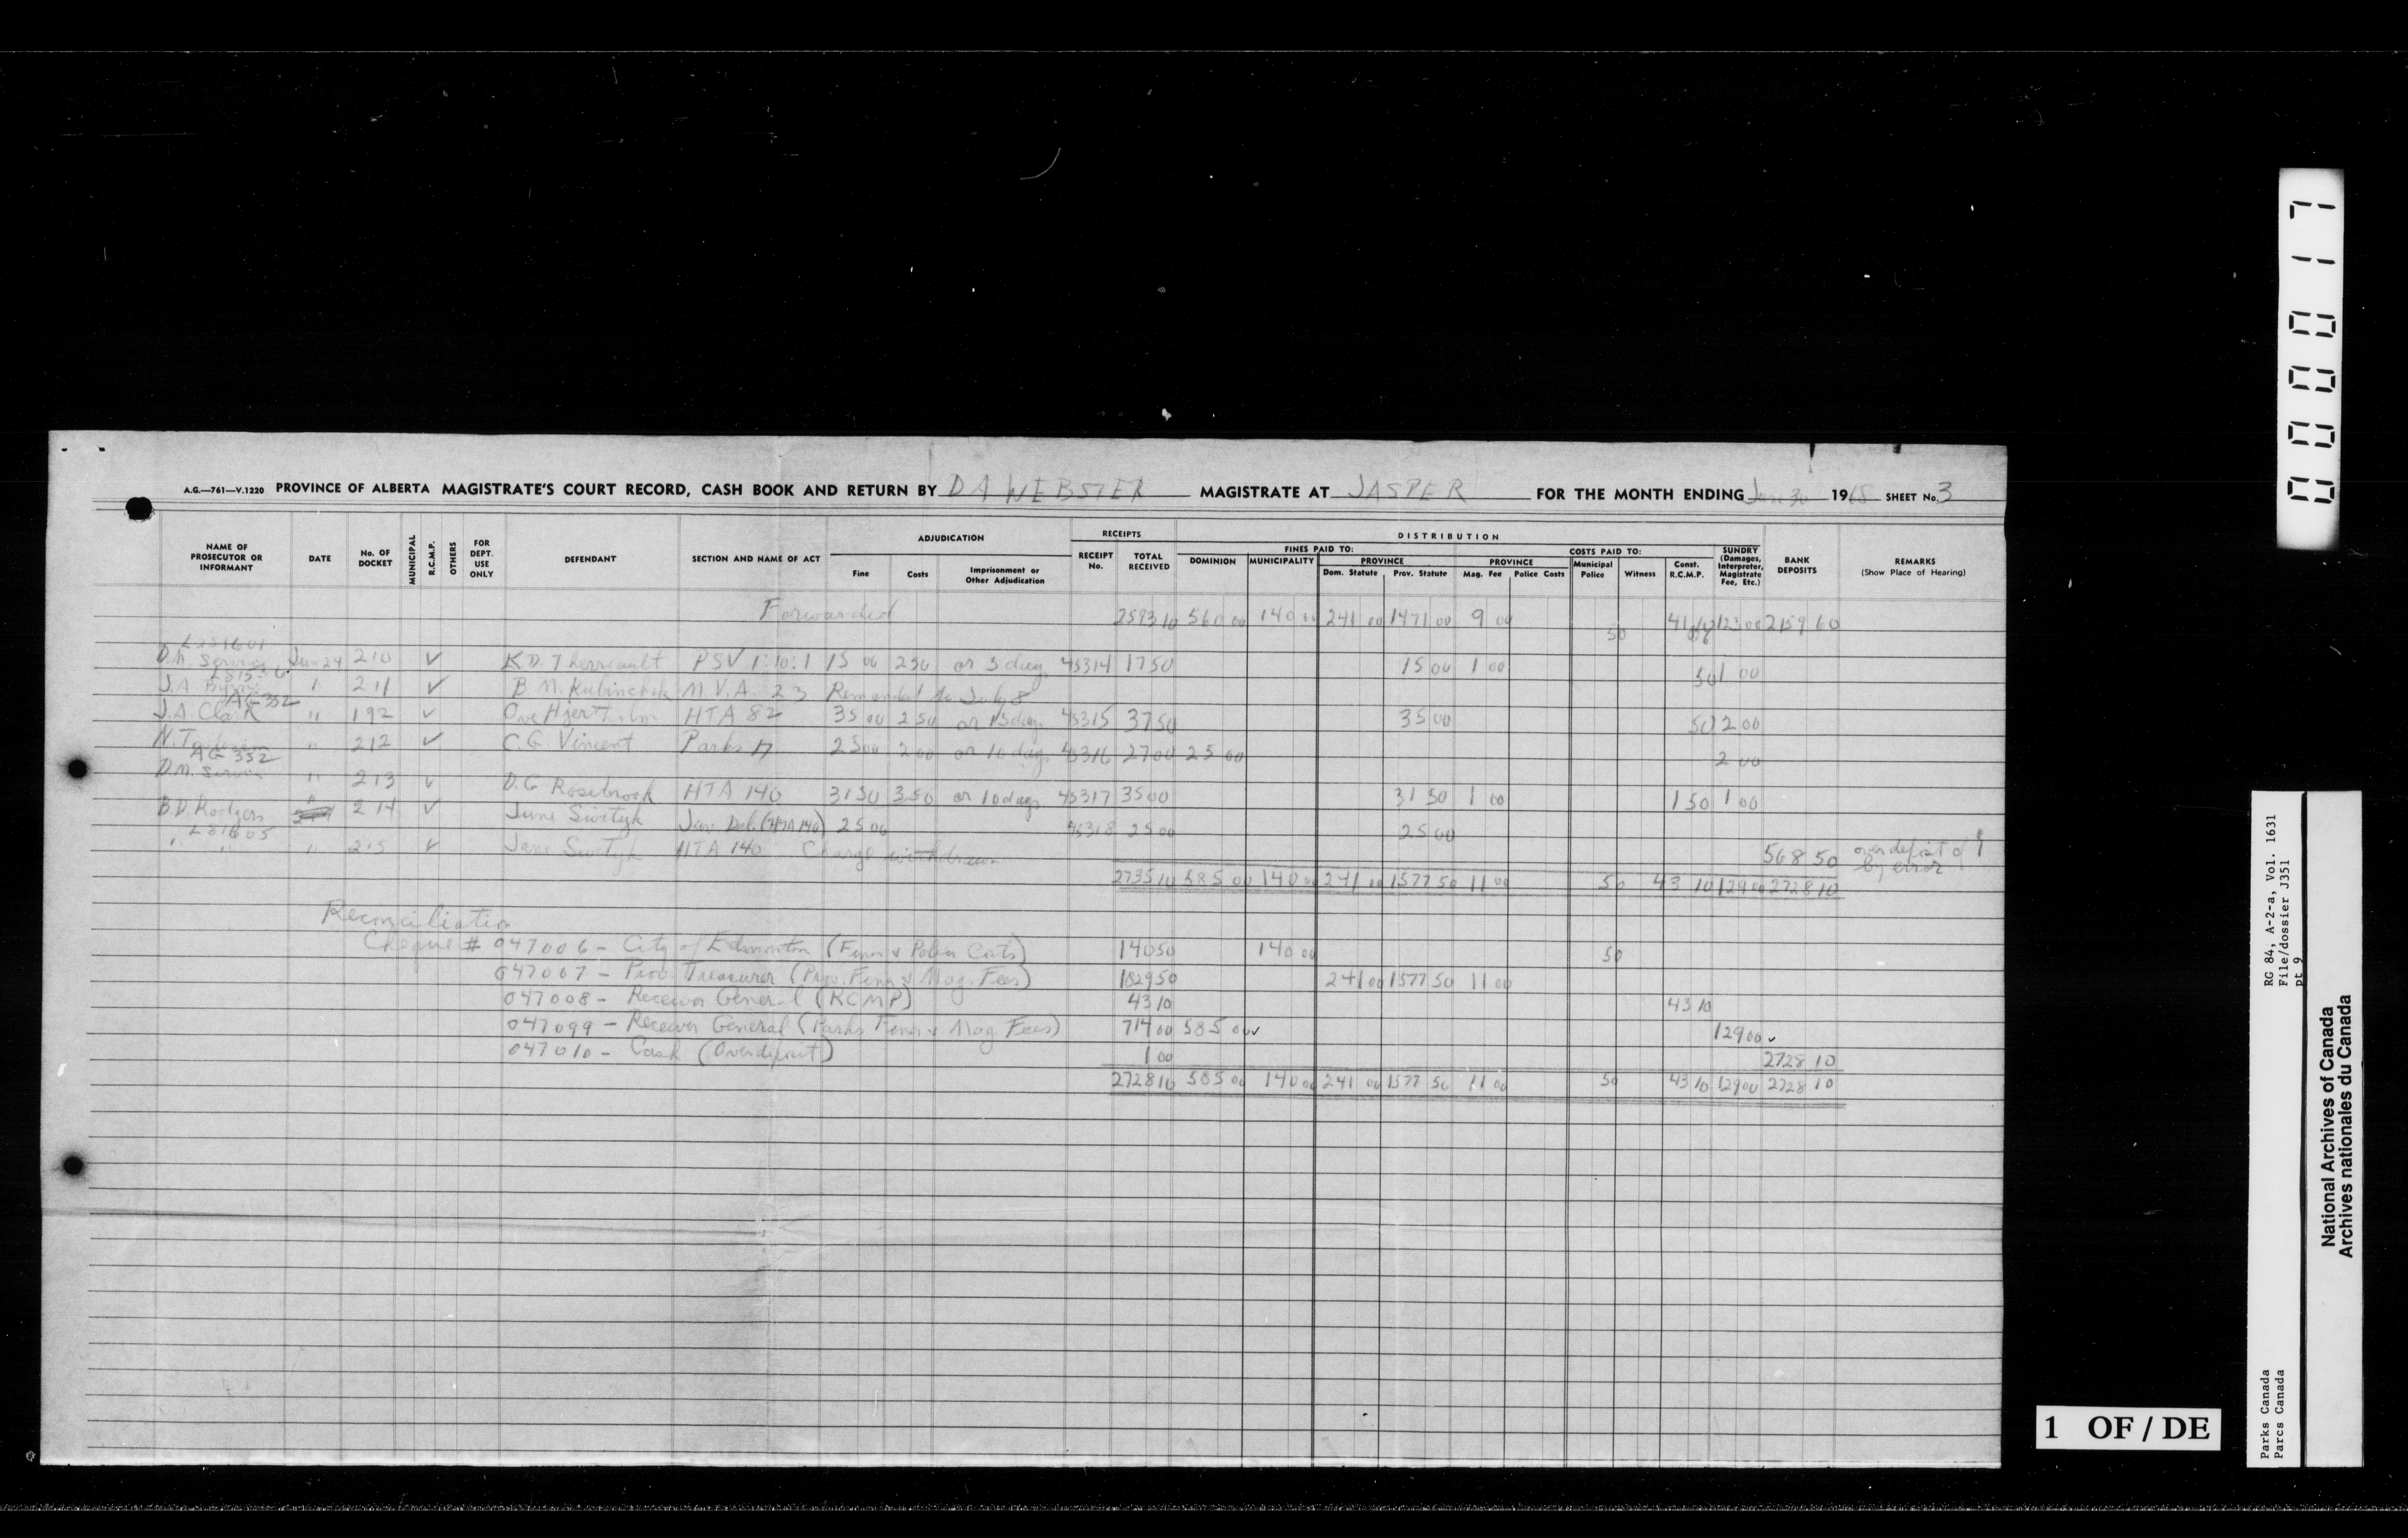 A.G.—761—V.1220 PROVINCE OF ALBERTA MAGISTRATE'S COURT RECORD, CASH BOOK AND RETURN BY D A WEBSTER MAGISTRATE AT JASPER FOR THE MONTH ENDING June 30 1965 SHEET No. 3
NAME OF PROSECUTOR OR INFORMANT
DATE
No. OF DOCKET
MUNICIPAL
R.C.M.P.
OTHERS
FOR DEPT. USE ONLY
DEFENDANT
SECTION AND NAME OF ACT
ADJUDICATION
Fine
Costs
Imprisonment or Other Adjudication
RECEIPTS
RECEIPT No.
TOTAL RECEIVED
DISTRIBUTION
FINES PAID TO:
DOMINION
MUNICIPALITY
PROVINCE
Dom. Statute
Prov. Statute
COSTS PAID TO:
PROVINCE
Mag. Fee
Police Costs
Municipal Police
Witness
Const. R.C.M.P.
SUNDRY (Damages, Interpreter, Magistrate Fee, Etc.)
BANK DEPOSITS
REMARKS (Show Place of Hearing)
Forwarded 2593 10 560 00 140 00 241 00 1471 00 9 00 50 123 00 2159 60
D.M. Jun 24 210 ✓ K.D. Therriault PSV 1:10:1 15 00 2 50 or 3 days 45314 17 50 15 00 1 00 50 1 00
J.A. " 211 ✓ B M. M.V.A. 23 Remanded to July 8
AG 352
J.A. Clark " 192 ✓ HTA 82 35 00 2 50 or 15 days 45315 37 50 35 00 50 2 00
N. " 212 ✓ C.G. Vincent Parks 17 25 00 2 00 or 10 days 45316 27 00 25 00 2 00
AG 352
D.M. " 213 ✓ D.G Rosebrook HTA 140 31 50 3 50 or 10 days 45317 35 00 31 50 1 00 1 50 1 00
B.D. Rodgers " 214 ✓ June Juv. Del. (HTA 140) 25 00 45318 25 00 25 00
L81605
" " " 215 ✓ June HTA 140 Charge withdrawn 568 50 over deposit of 1 by error
2735 10 585 00 140 00 241 00 1577 50 11 00 50 43 10 129 00 2728 10
Reconciliation
Cheque # 047006 - City of Edmonton (Fines & Police Costs) 140 50 140 00 50
047007 - Prov. Treasurer (Prov. Fines & Mag. Fees) 1829 50 241 00 1577 50 11 00
047008 - Receiver General (RCMP) 43 10 43 10
047099 - Receiver General (Parks Fines & Mag Fees) 714 00 585 00 ✓ 129 00 ✓
047010 - Cash (Overdeposit) 1 00 2728 10
2728 10 585 00 140 00 241 00 1577 50 11 00 50 43 10 129 00 2728 10
000017
RG 84, A-2-a, Vol. 1631
File/dossier J351
pt 9
Parks Canada
Parcs Canada
National Archives of Canada
Archives nationales du Canada
1 OF / DE